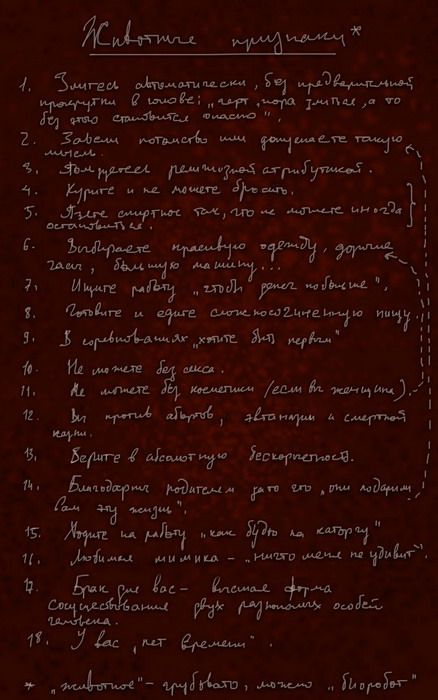 Животные признаки*
1. Злитесь автоматически, без предварительной
прокрутки в голове: „черт, пора злиться, а то
без этого становится опасно".
2. Завели потомство или допускаете такую
мысль.
3. религиозной атрибутикой.
4. Курите и не можете бросить.
5. спиртное так, что не можете иногда
остановиться.
6. Выбираете красивую одежду, дорогие
часы, большую машину...
7. Ищите работу „чтобы денег побольше".
8. Готовите и едите сложносочиненную пищу.
9. В соревнованиях „хотите быть первым"
10. Не можете без секса.
11. Не можете без косметики (если вы женщина).
12. Вы против абортов, эвтаназии и смертной
казни.
13. Верите в абсолютную бескорыстность.
14. Благодарны родителям за то что „они подарили
вам эту жизнь".
15. Ходите на работу „как будто на каторгу"
16. Любимая мимика – „ничто меня не удивит".
17. Брак для вас – высшая форма
сосуществования двух разнополых особей
человека.
18. У вас „нет времени".
* „животное" – грубовато, можно „биоробот"